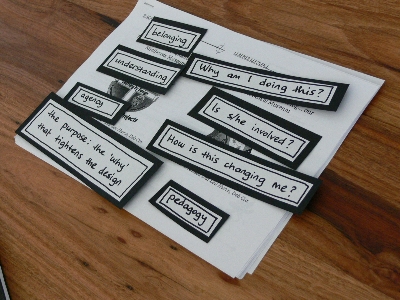 belonging
understanding
Why am I doing this?
agency
Is she involved?
the purpose: the 'why'
that tightens the design
How is this changing me?
pedagogy